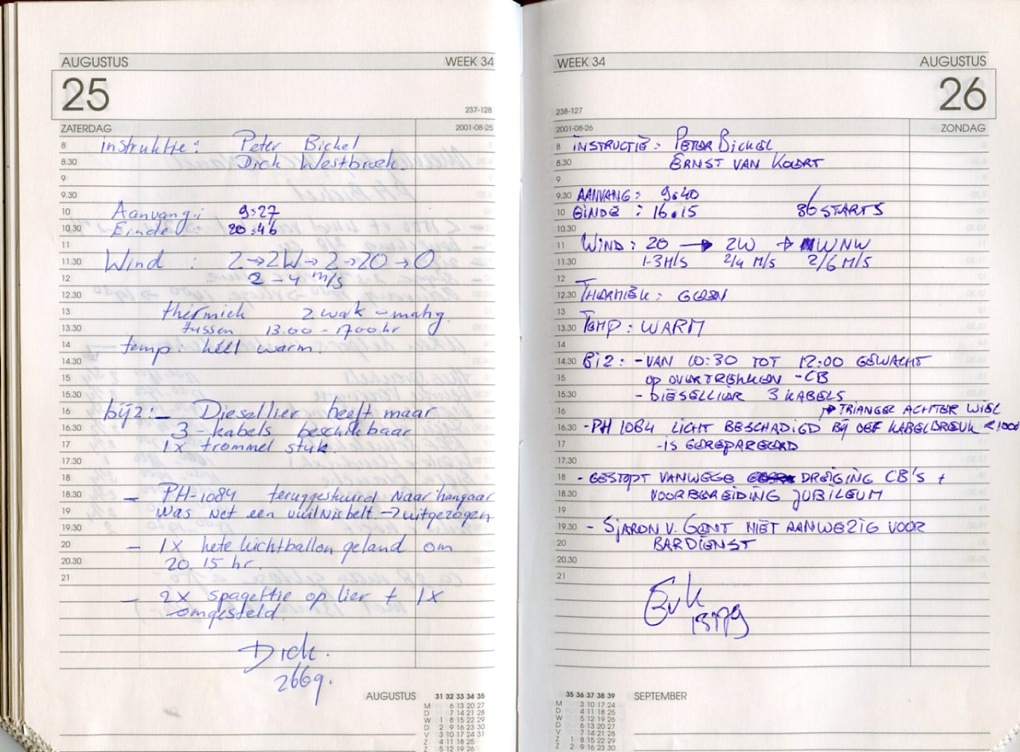 AUGUSTUS WEEK 34
25
237-128
ZATERDAG 2001-08-25
8 instruktie: Peter Bickel
8.30 Dick Westbroek.
9
9.30
10 Aanvang: 9:27
10.30 Einde: 20:46
11
11.30 Wind : Z→ZW→Z→ZO→O
12 2 - 4 m/s
12.30
13 thermiek zwak - matig.
13.30 tussen 13.00 - 1700hr
14 temp: heel warm.
14.30
15
15.30
16 bijz: - Diesellier heeft maar
16.30 3 - kabels beschikbaar
17 1x trommel stuk.
17.30
18
18.30 - PH-1084 teruggestuurd naar hangaar
19 was net een vuilnisbelt → uitgezogen
19.30
20 - 1x hete luchtballon geland om
20.30 20.15 hr.
21
- 2x spagettie op lier + 1x
omgesteld.
Dick.
2669.
AUGUSTUS 31 32 33 34 35
M 6 13 20 27
D 7 14 21 28
W 1 8 15 22 29
D 2 9 16 23 30
V 3 10 17 24 31
Z 4 11 18 25
Z 5 12 19 26
WEEK 34 AUGUSTUS
26
238-127
2001-08-26 ZONDAG
8 INSTRUCTIE: PETER BICKEL
8.30 ERNST VAN KOERT
9
9.30 AANVANG: 9:40
10 EINDE : 16.15 86 STARTS
10.30
11 WIND: ZO → ZW → WNW
11.30 1-3M/S 2/4 M/S 2/6 M/S
12
12.30 THERMIEK: GEEN
13
13.30 TEMP: WARM
14
14.30 BIZ: - VAN 10:30 TOT 12:00 GEWACHT
15 OP OVERTREKKEN - CB
15.30 - DIESELLIER 3 KABELS
16 TRIANGEL ACHTER WIEL
16.30 - PH 1084 LICHT BESCHADIGD BIJ OEF KABELBREUK
17 - IS GEREPAREERD
17.30
18 - GESTOPT VANWEGE DREIGING CB'S +
18.30 VOORBEREIDING JUBILEUM
19
19.30 - SJARON V. GENT NIET AANWEZIG VOOR
20 BARDIENST
20.30
21
EvK
35 36 37 38 39 SEPTEMBER
M 3 10 17 24
D 4 11 18 25
W 5 12 19 26
D 6 13 20 27
V 7 14 21 28
Z 1 8 15 22 29
Z 2 9 16 23 30